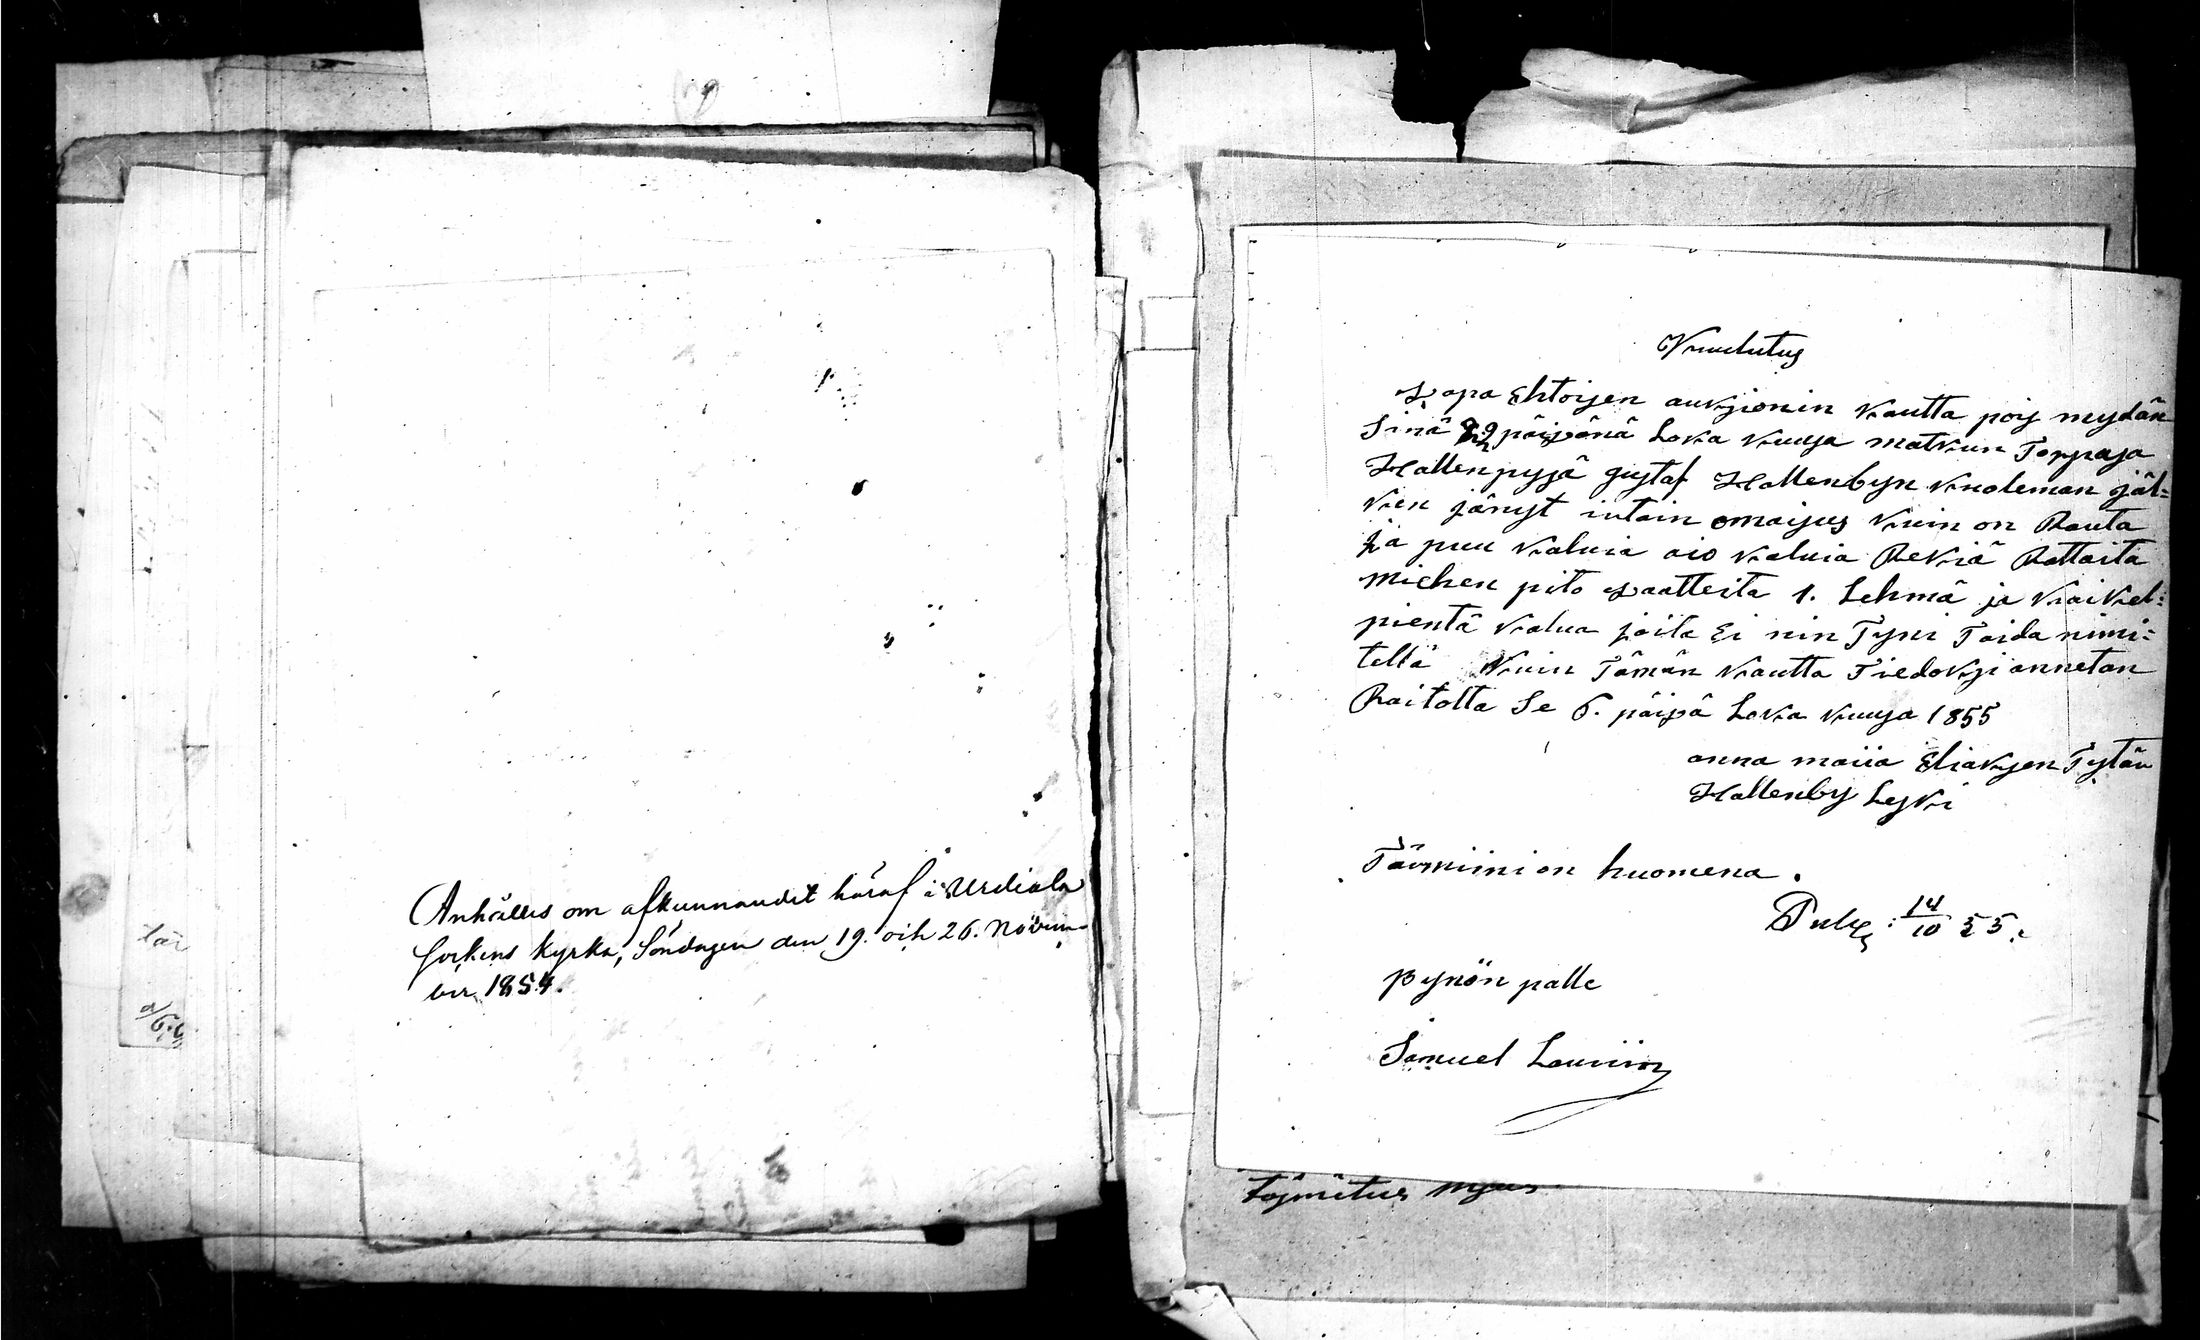 Anhålles om afkunnandet häraf i Urdiala
Sockens kyrka, Söndagen den 19. och 26. Novem-
ber 1854.
Kuulutus
Wapa Ehtoisen aukzionin kautta pois mydän
Sinä päivänä Loka kuusa matkun Torpasa
Hallenpysä gustaf Hallenbyn kuoleman jäl=
ken jänyt irtain omaisus kuin on Rauta
ja puu kaluia aio kaluia Rekiä Rattaita
miehen pito waatteita 1. Lehmä ja kaikel=
pientä kalua joita Ei nin Tysni Taida nimi=
tellä kuin Tämän kautta Tiedoksi annetan
Raitolta Se 6. päivä Loka kuusa 1855
anna maiia Eliaksen Tytär
Hallenby Leski
Tärmiini on huomena.
Pulc. 14/10 55.
pynön palle
Samuel Lauriin
Toimitus